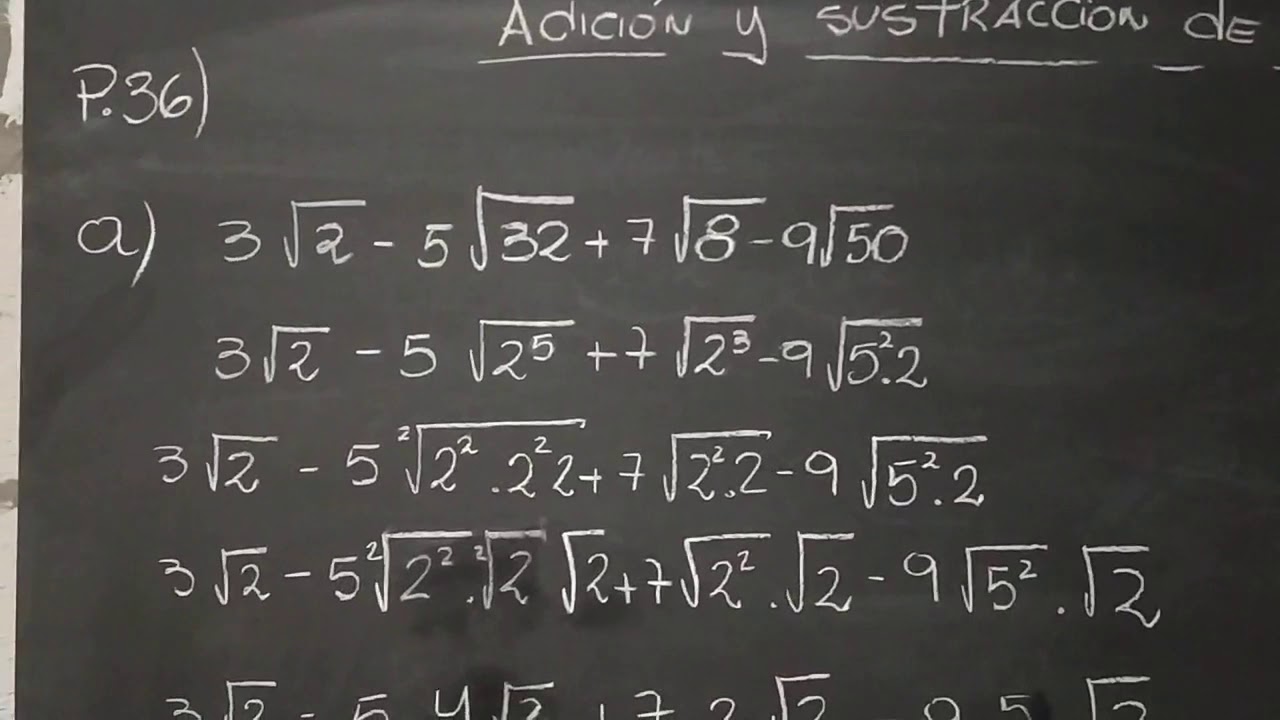 Adición y sustracción de
P.36)
a) 3√2 - 5√32 + 7√8 - 9√50
3√2 - 5√2⁵ + 7√2³ - 9√5².2
3√2 - 5²√2².2²2 + 7√2².2 - 9√5².2
3√2 - 5²√2².²√2 √2 + 7√2².√2 - 9√5².√2
3√2 - 5 4√2 + 7 2√2 - 9 5√2